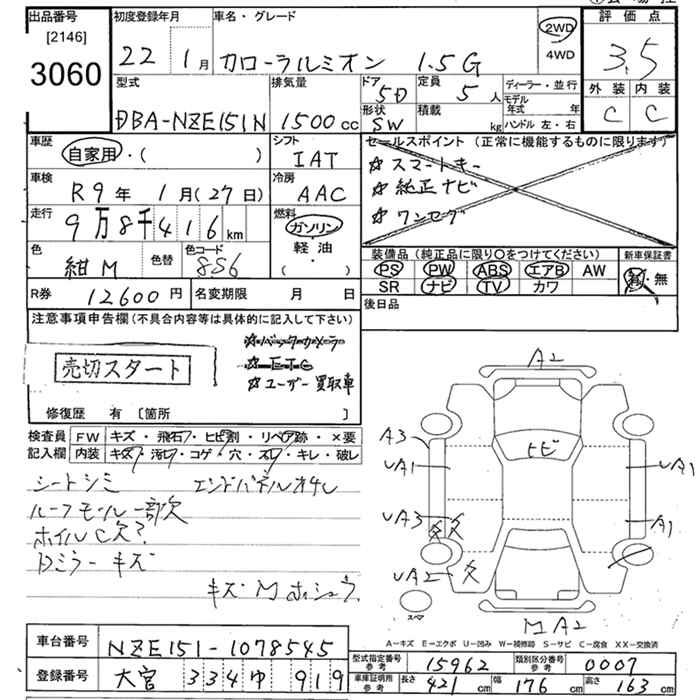 出品番号
[2146]
3060
初度登録年月
22 1月
車名・グレード
カローラルミオン 1.5G
2WD
4WD
評価点
3.5
外装 内装
C C
型式
DBA-NZE151N
排気量
1500cc
ドア
5D
形状
SW
定員
5人
積載
kg
ディーラー・並行
モデル年式 年
ハンドル 左・右
車歴
自家用・( )
シフト
IAT
車検
R9年 1月(27日)
冷房
AAC
走行
9万8千416km
燃料
ガソリン
軽油
( ・ )
色
紺M
色替
色コード
8S6
セールスポイント (正常に機能するものに限ります)
☆スマートキー
☆純正ナビ
☆ワンセグ
装備品 (純正品に限り○をつけてください)
PS PW ABS エアB AW
SR ナビ TV カワ
新車保証書
有・無
R券 12600円
名変期限 月 日
後日品
注意事項申告欄(不具合内容等は具体的に記入して下さい)
☆バックカメラ
☆ETC
☆ユーザー買取車
売切スタート
修復歴 有 [箇所 ]
検査員記入欄
FW キズ・飛石・ヒビ割・リペア跡・×要
内装 キズ・汚れ・コゲ・穴・スレ・キレ・破レ
シートシミ エンドパネルオサレ
ルーフモール一部欠
ホイルC欠?
Dミラーキズ
キズMホシュウ
A2
A3
UA1
ヒビ
UA1
UA3
A1
UA2
スペア
MA2
A－キズ E－エクボ U－凹み W－補修跡 S－サビ C－腐食 XX－交換済
車台番号 NZE151-1078545
登録番号 大宮 334 ゆ 919
型式指定番号 参考 15962
類別区分番号 参考 0007
車庫証明所 参考 長さ 421cm 幅 176cm 高さ 163cm